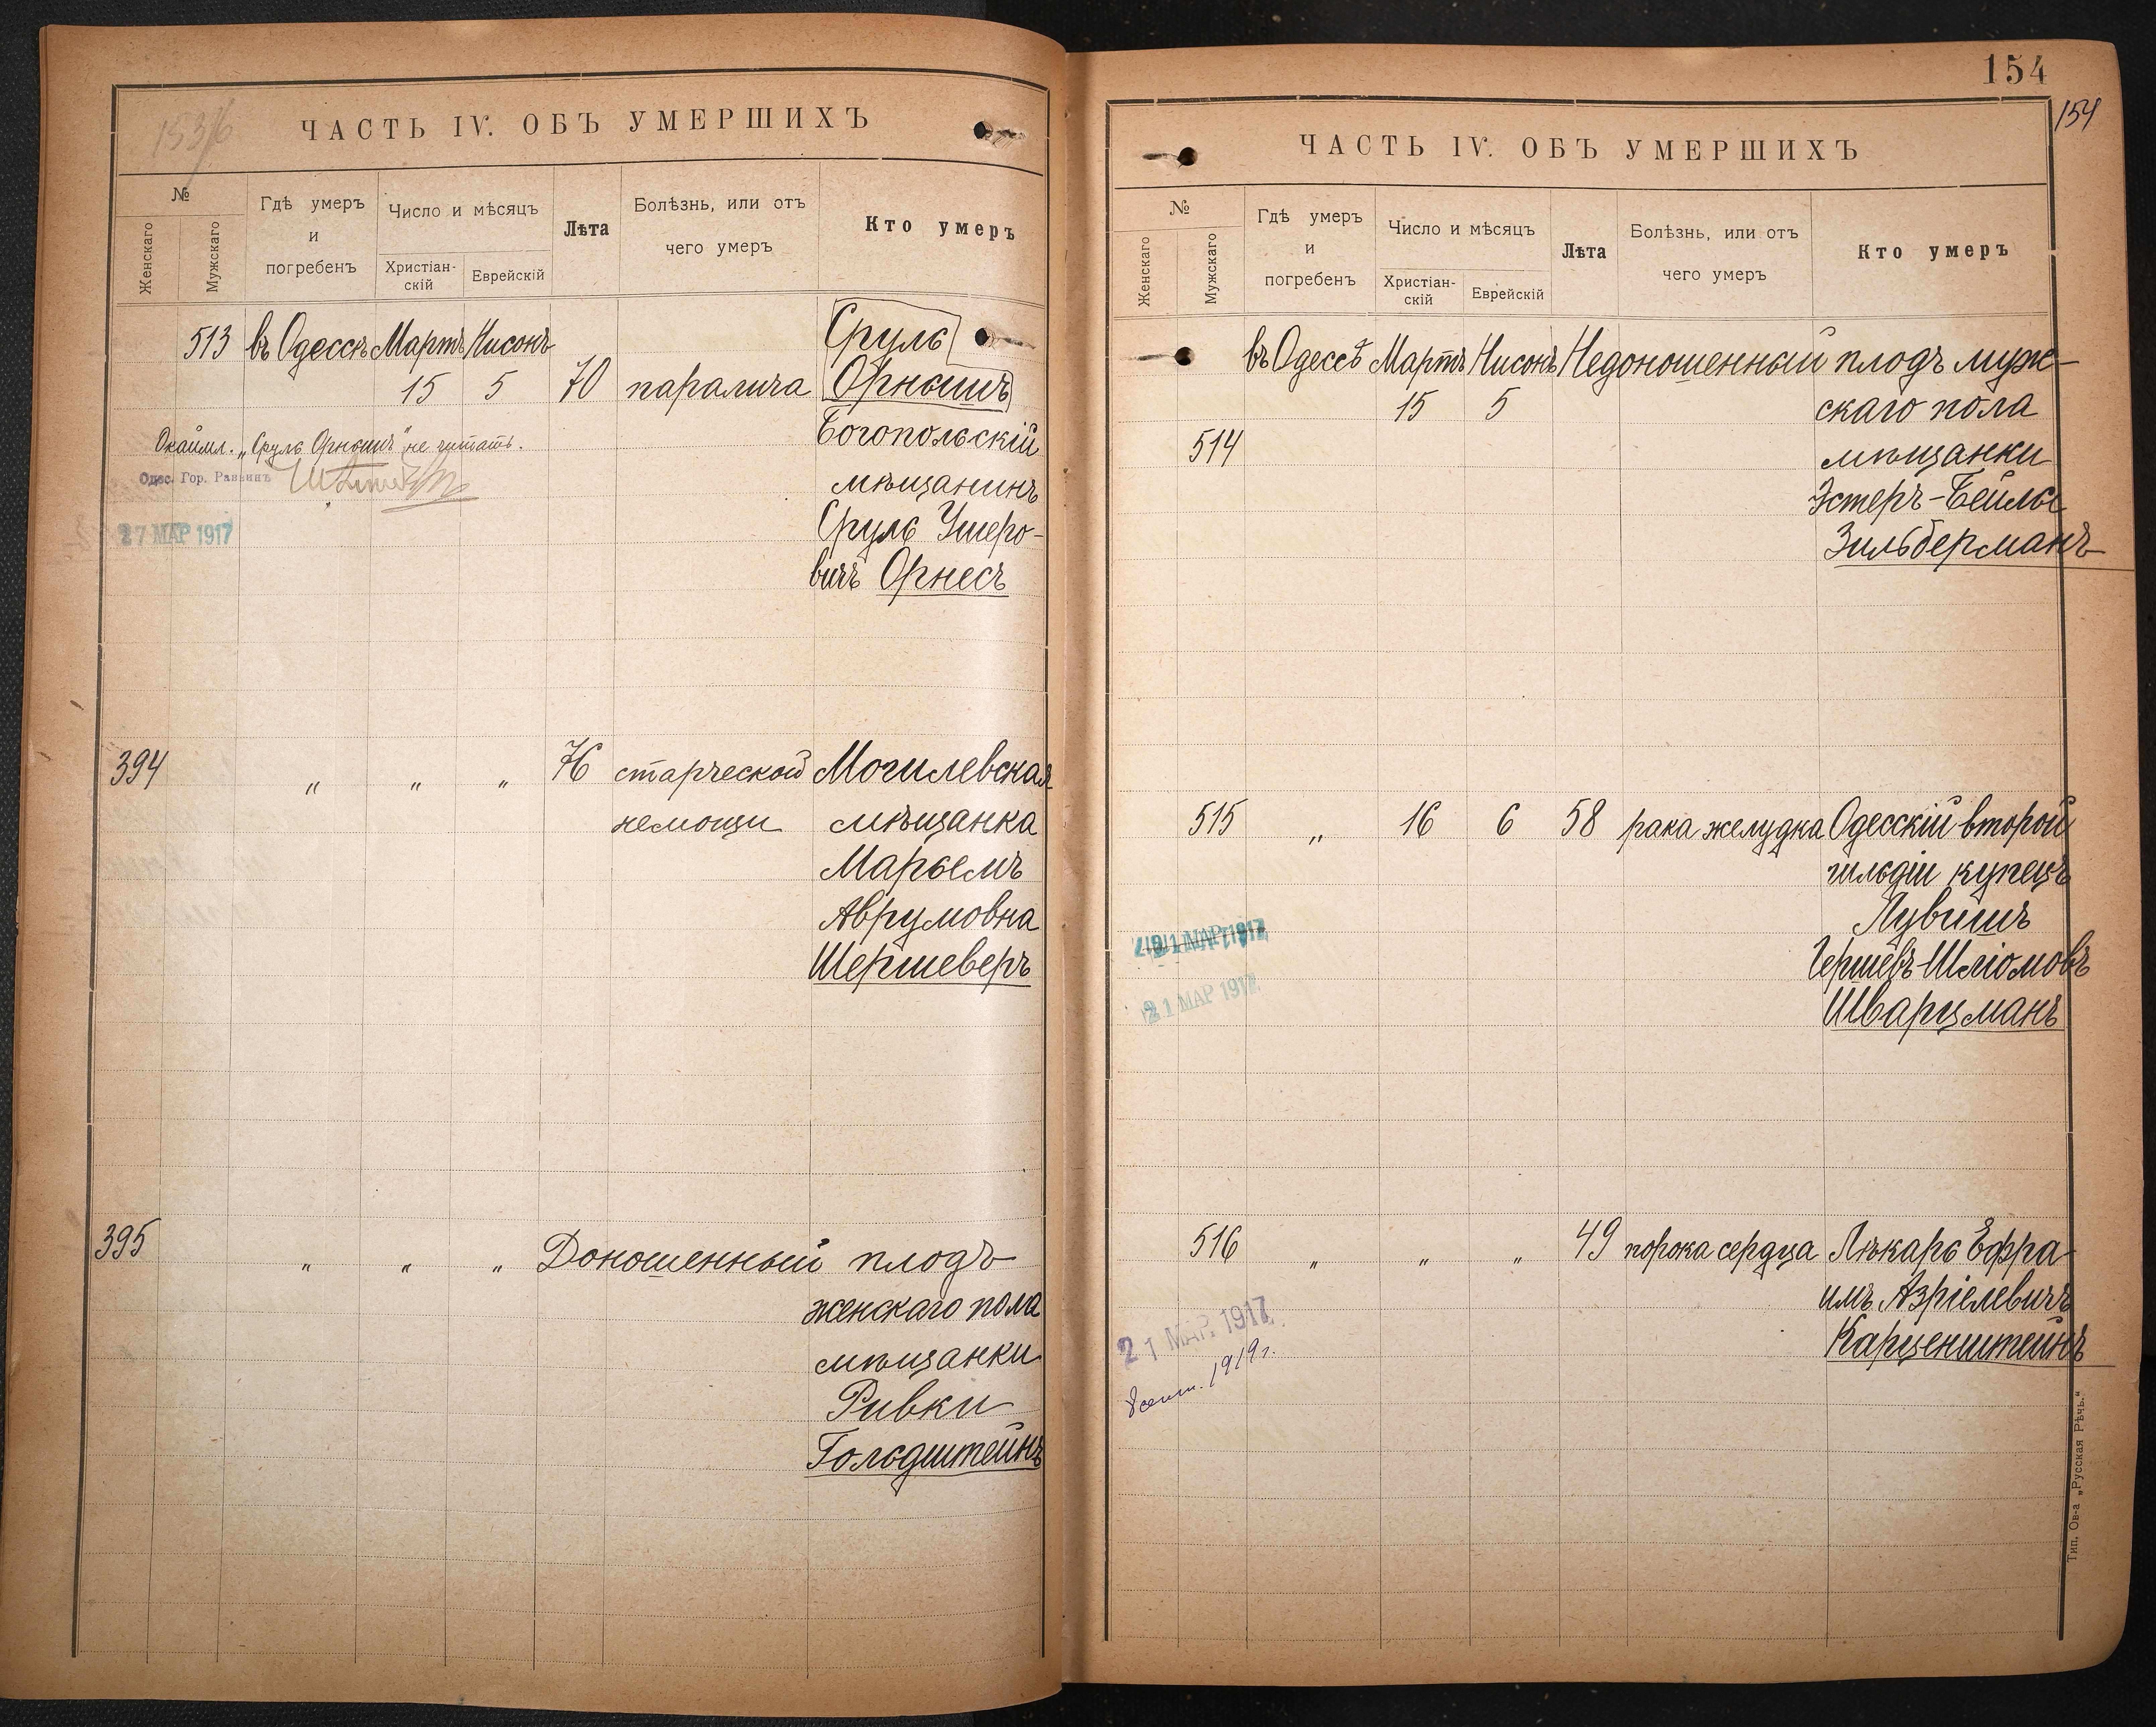 153/6
ЧАСТЬ IV. ОБЪ УМЕРШИХЪ
№
Женскаго
Мужскаго
Гдѣ умеръ и погребенъ
Число и мѣсяцъ
Христіан-скій
Еврейскій
Лѣта
Болѣзнь, или отъ чего умеръ
Кто умеръ
513 въ Одессѣ Мартъ Нисонъ Сруль
15 5 70 паралича Орнышъ
Богопольскій
мѣщанинъ
Сруль Ушеро-
вичъ Орнесъ
Окаймл. „Сруль Орнышъ" не читать.
Одес. Гор. Раввинъ
27 МАР 1917
394 " " " 76 старческой Могилевская
немощи мѣщанка
Марьемъ
Аврумовна
Шершеверъ
395 " " " Доношенный плодъ
женскаго пола
мѣщанки
Ривки
Гольдштейнъ
154
154
ЧАСТЬ IV. ОБЪ УМЕРШИХЪ
№
Женскаго
Мужскаго
Гдѣ умеръ и погребенъ
Число и мѣсяцъ
Христіан-скій
Еврейскій
Лѣта
Болѣзнь, или отъ чего умеръ
Кто умеръ
въ Одессѣ Мартъ Нисонъ Недоношенный плодъ муж-
15 5 скаго пола
514 мѣщанки
Эстеръ-Бейлы
Зильберманъ
515 " 16 6 58 рака желудка Одесскій второй
гильдіи купецъ
Лувишъ
Гершевъ-Шліомовъ
Шварцманъ
21 МАР 1917
516 " " " 49 порока сердца Лѣкарь Ефра-
имъ Азріелевичъ
Карценштейнъ
21 МАР. 1917
1919 г.
Тип. Ов-а „Русская Рѣчь."